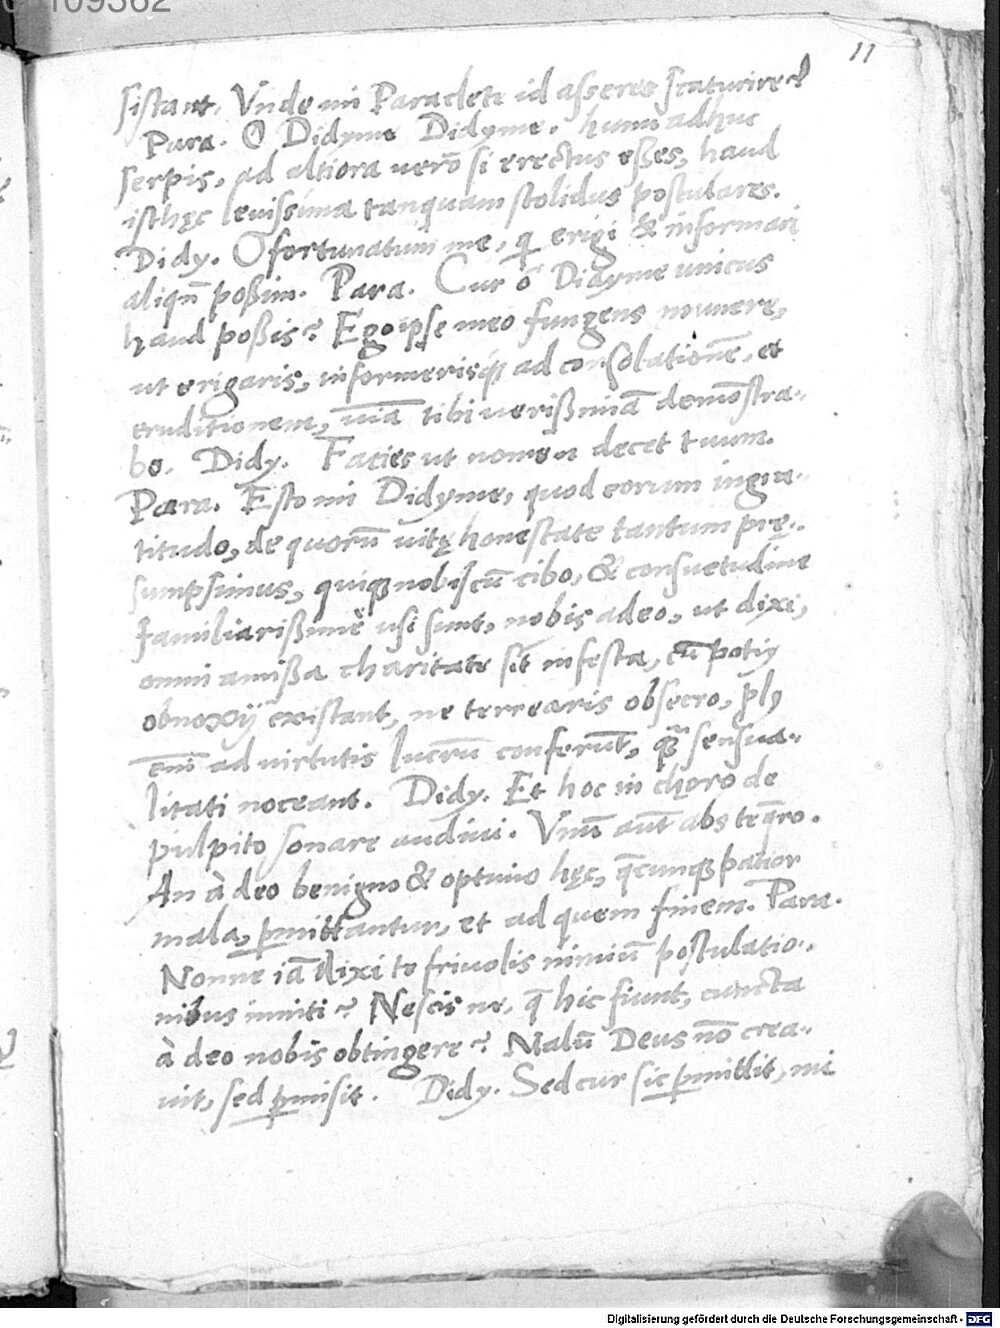 11
sistant, Vnde mi Paraclete id asseres scaturire?
Para. O Didyme Didyme, humi adhuc
serpis, ad altiora verò si erectus eßes, haud
isthęc leuissima tanquam stolidus postulares.
Didy. O fortunatum me, qui erigi & informari
aliqñ poßim. Para. Cur ô Didyme unicus
haud poßis? Ego ipse meo fungens munere,
ut erigaris, informerisq́ ad consolationē, et
eruditionem, viā tibi verißimā demōstra-
bo. Didy. Facies ut nomen decet tuum.
Para. Esto mi Didyme, quod eorum ingra-
titudo, de quorū vitę honestate tantum prę-
sumpsimus, quiq nobiscū cibo, & consuetudine
familiarißimè usi sunt, nobis adeo, ut dixi,
omni amißa charitate sit infesta, cū potiꝰ
obnoxÿ existant, ne terrearis obsecro, plꝰ
enī ad virtutis lucrū conferūt, quā sensua-
litati noceant. Didy. Et hoc in choro de
pulpito sonare audiui. Vnū aūt abs te q̄ro.
An à deo benigno & optimo hęc, q̄cunq patior
mala, ꝑmittantur, et ad quem finem. Para.
Nonne iā dixi te friuolis nimiū postulatio-
nibus inniti? Nescis ne, q̄ hic fiunt, cuncta
à deo nobis obtingere? Malū Deus nō crea-
uit, sed ꝑmisit. Didy. Sed cur sic ꝑmittit, mi
Digitalisierung gefördert durch die Deutsche Forschungsgemeinschaft - DFG